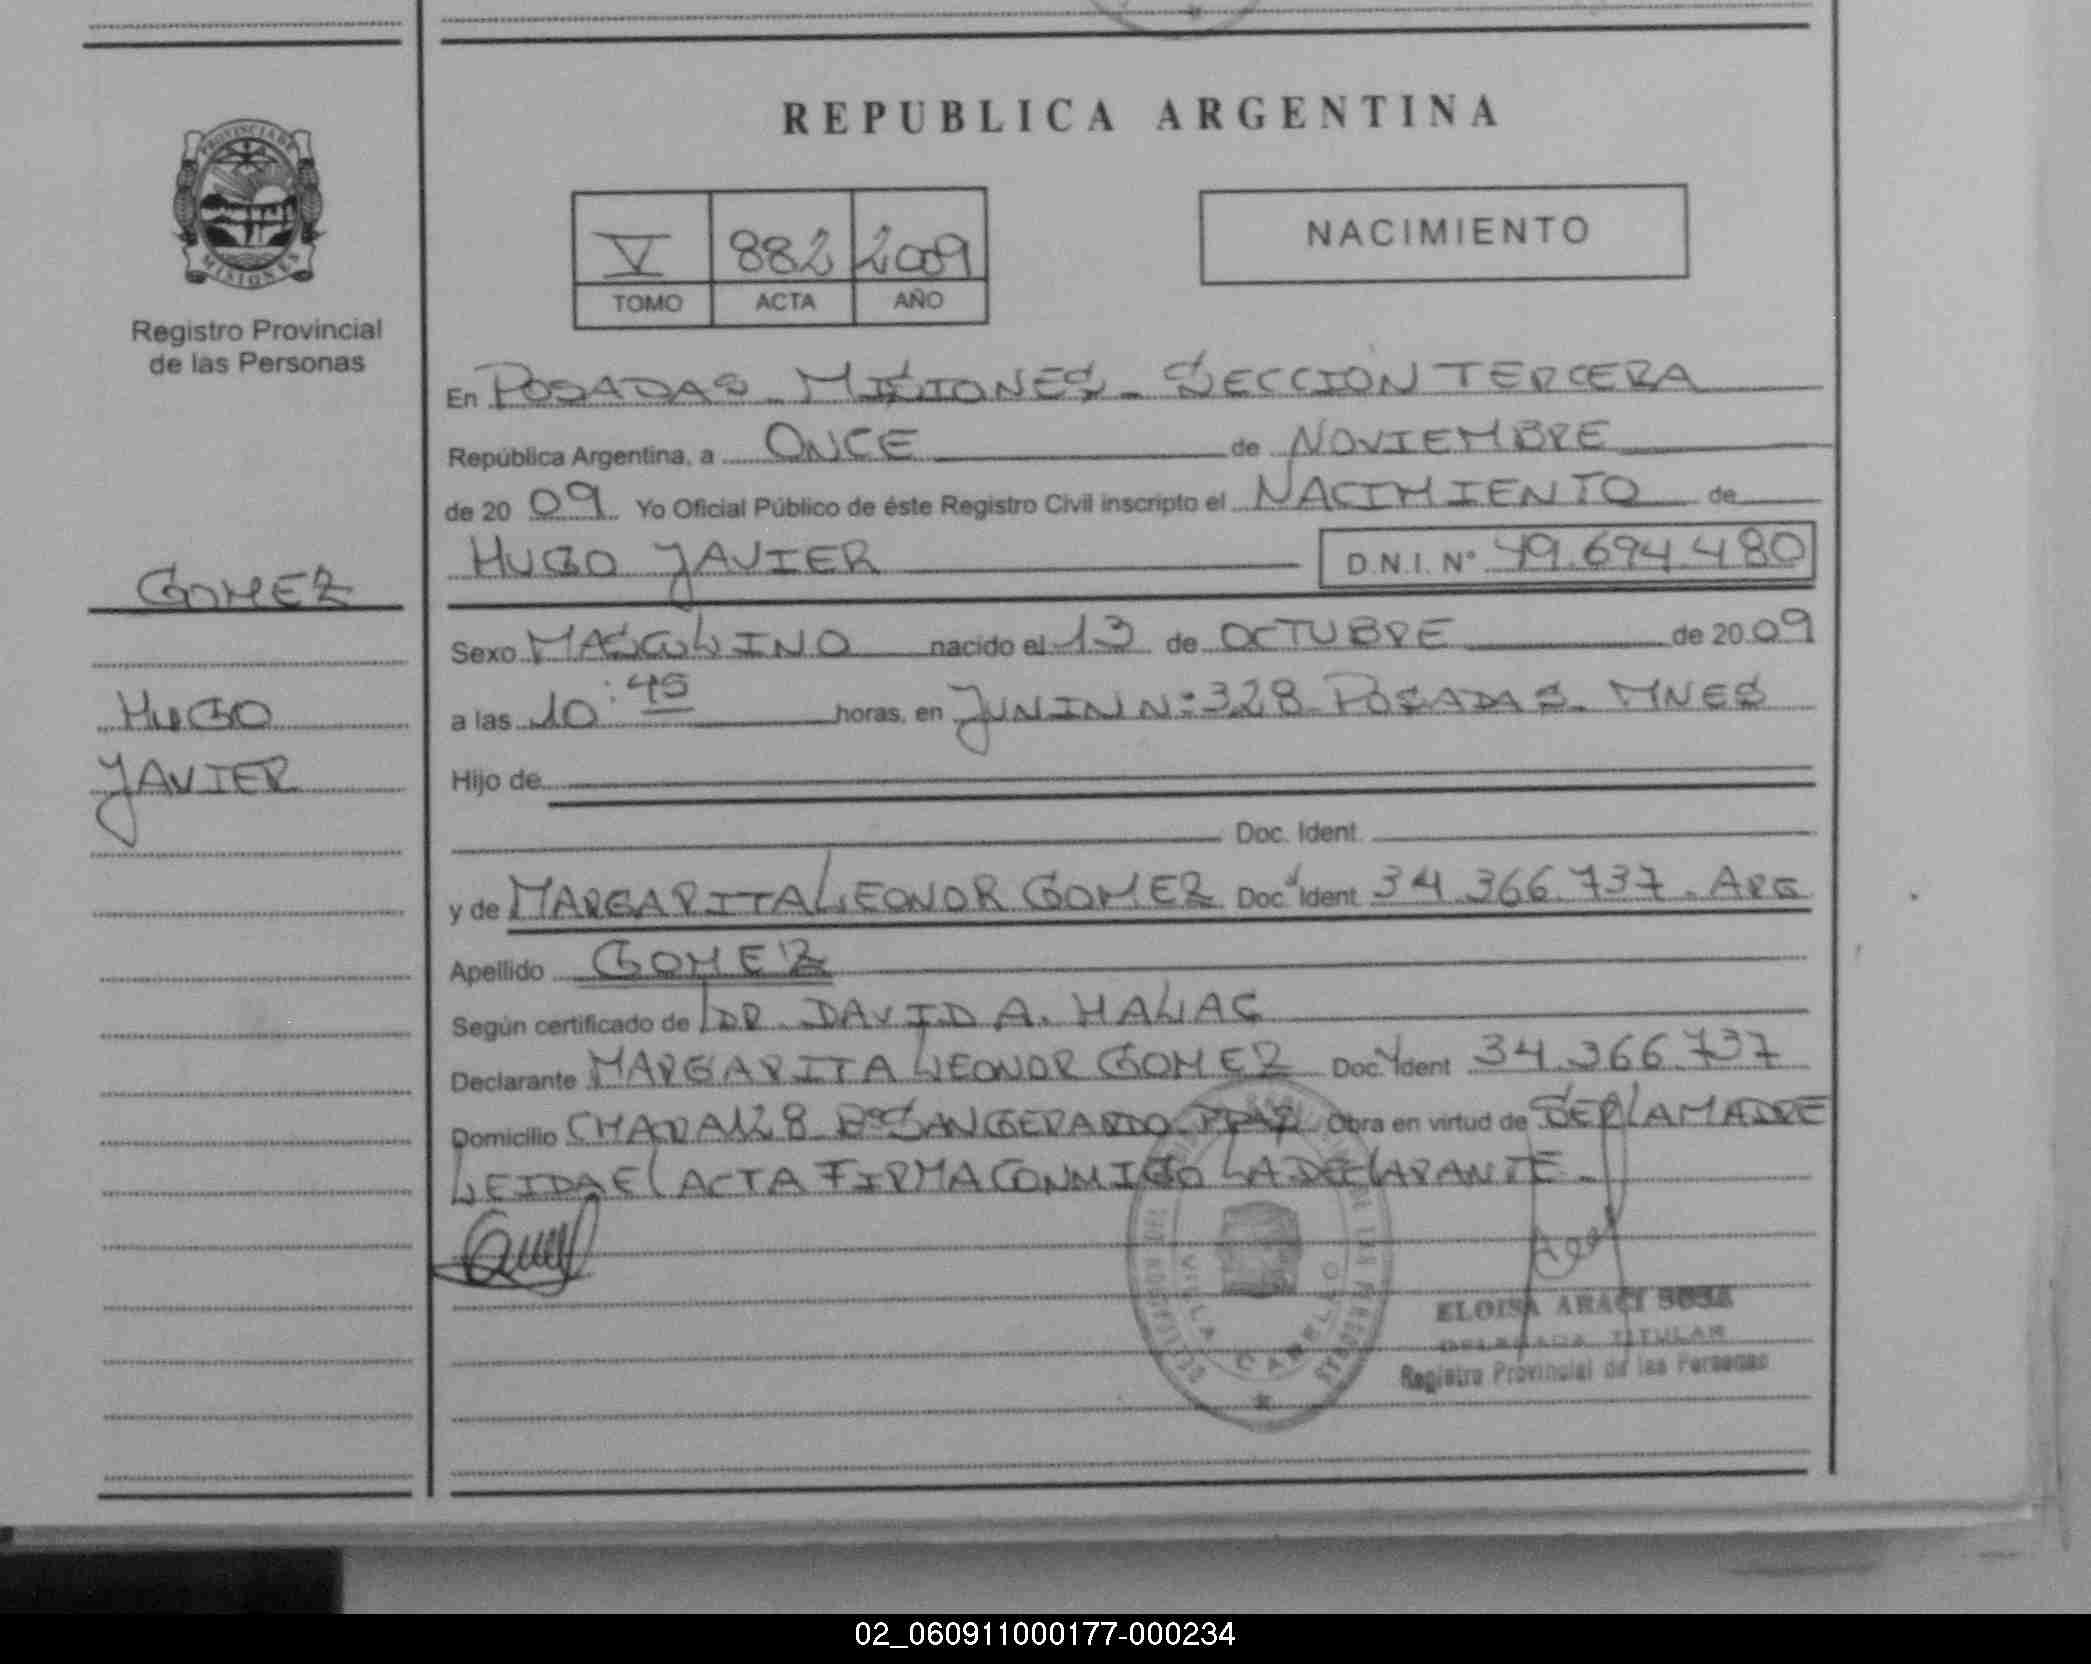 REPUBLICA ARGENTINA
PROVINCIA DE
MISIONES
Registro Provincial
de las Personas
NACIMIENTO
V 882 2009
TOMO ACTA AÑO
En POSADAS - MISIONES - SECCION TERCERA
República Argentina, a ONCE de NOVIEMBRE
de 20 09 Yo Oficial Público de éste Registro Civil inscripto el NACIMIENTO de
HUGO JAVIER D.N.I. Nº 49.694.480
GOMEZ
HUGO
JAVIER
Sexo MASCULINO nacido el 13 de OCTUBRE de 20 09
a las 10:45 horas, en JUNIN N: 328 POSADAS - MNES
Hijo de
Doc. Ident.
y de MARGARITA LEONOR GOMEZ Doc. Ident 34.366.737 - ARG
Apellido GOMEZ
Según certificado de DR. DAVID A. HALAC
Declarante MARGARITA LEONOR GOMEZ Doc. Ident 34.366.737
Domicilio 128 Bº SAN GERARDO Obra en virtud de SER LA MADRE
LEIDA EL ACTA FIRMA CONMIGO LA DECLARANTE -
VILLA CABELLO
ELOISA ARACI SOSA
DELEGADA TITULAR
Registro Provincial de las Personas
02_060911000177-000234